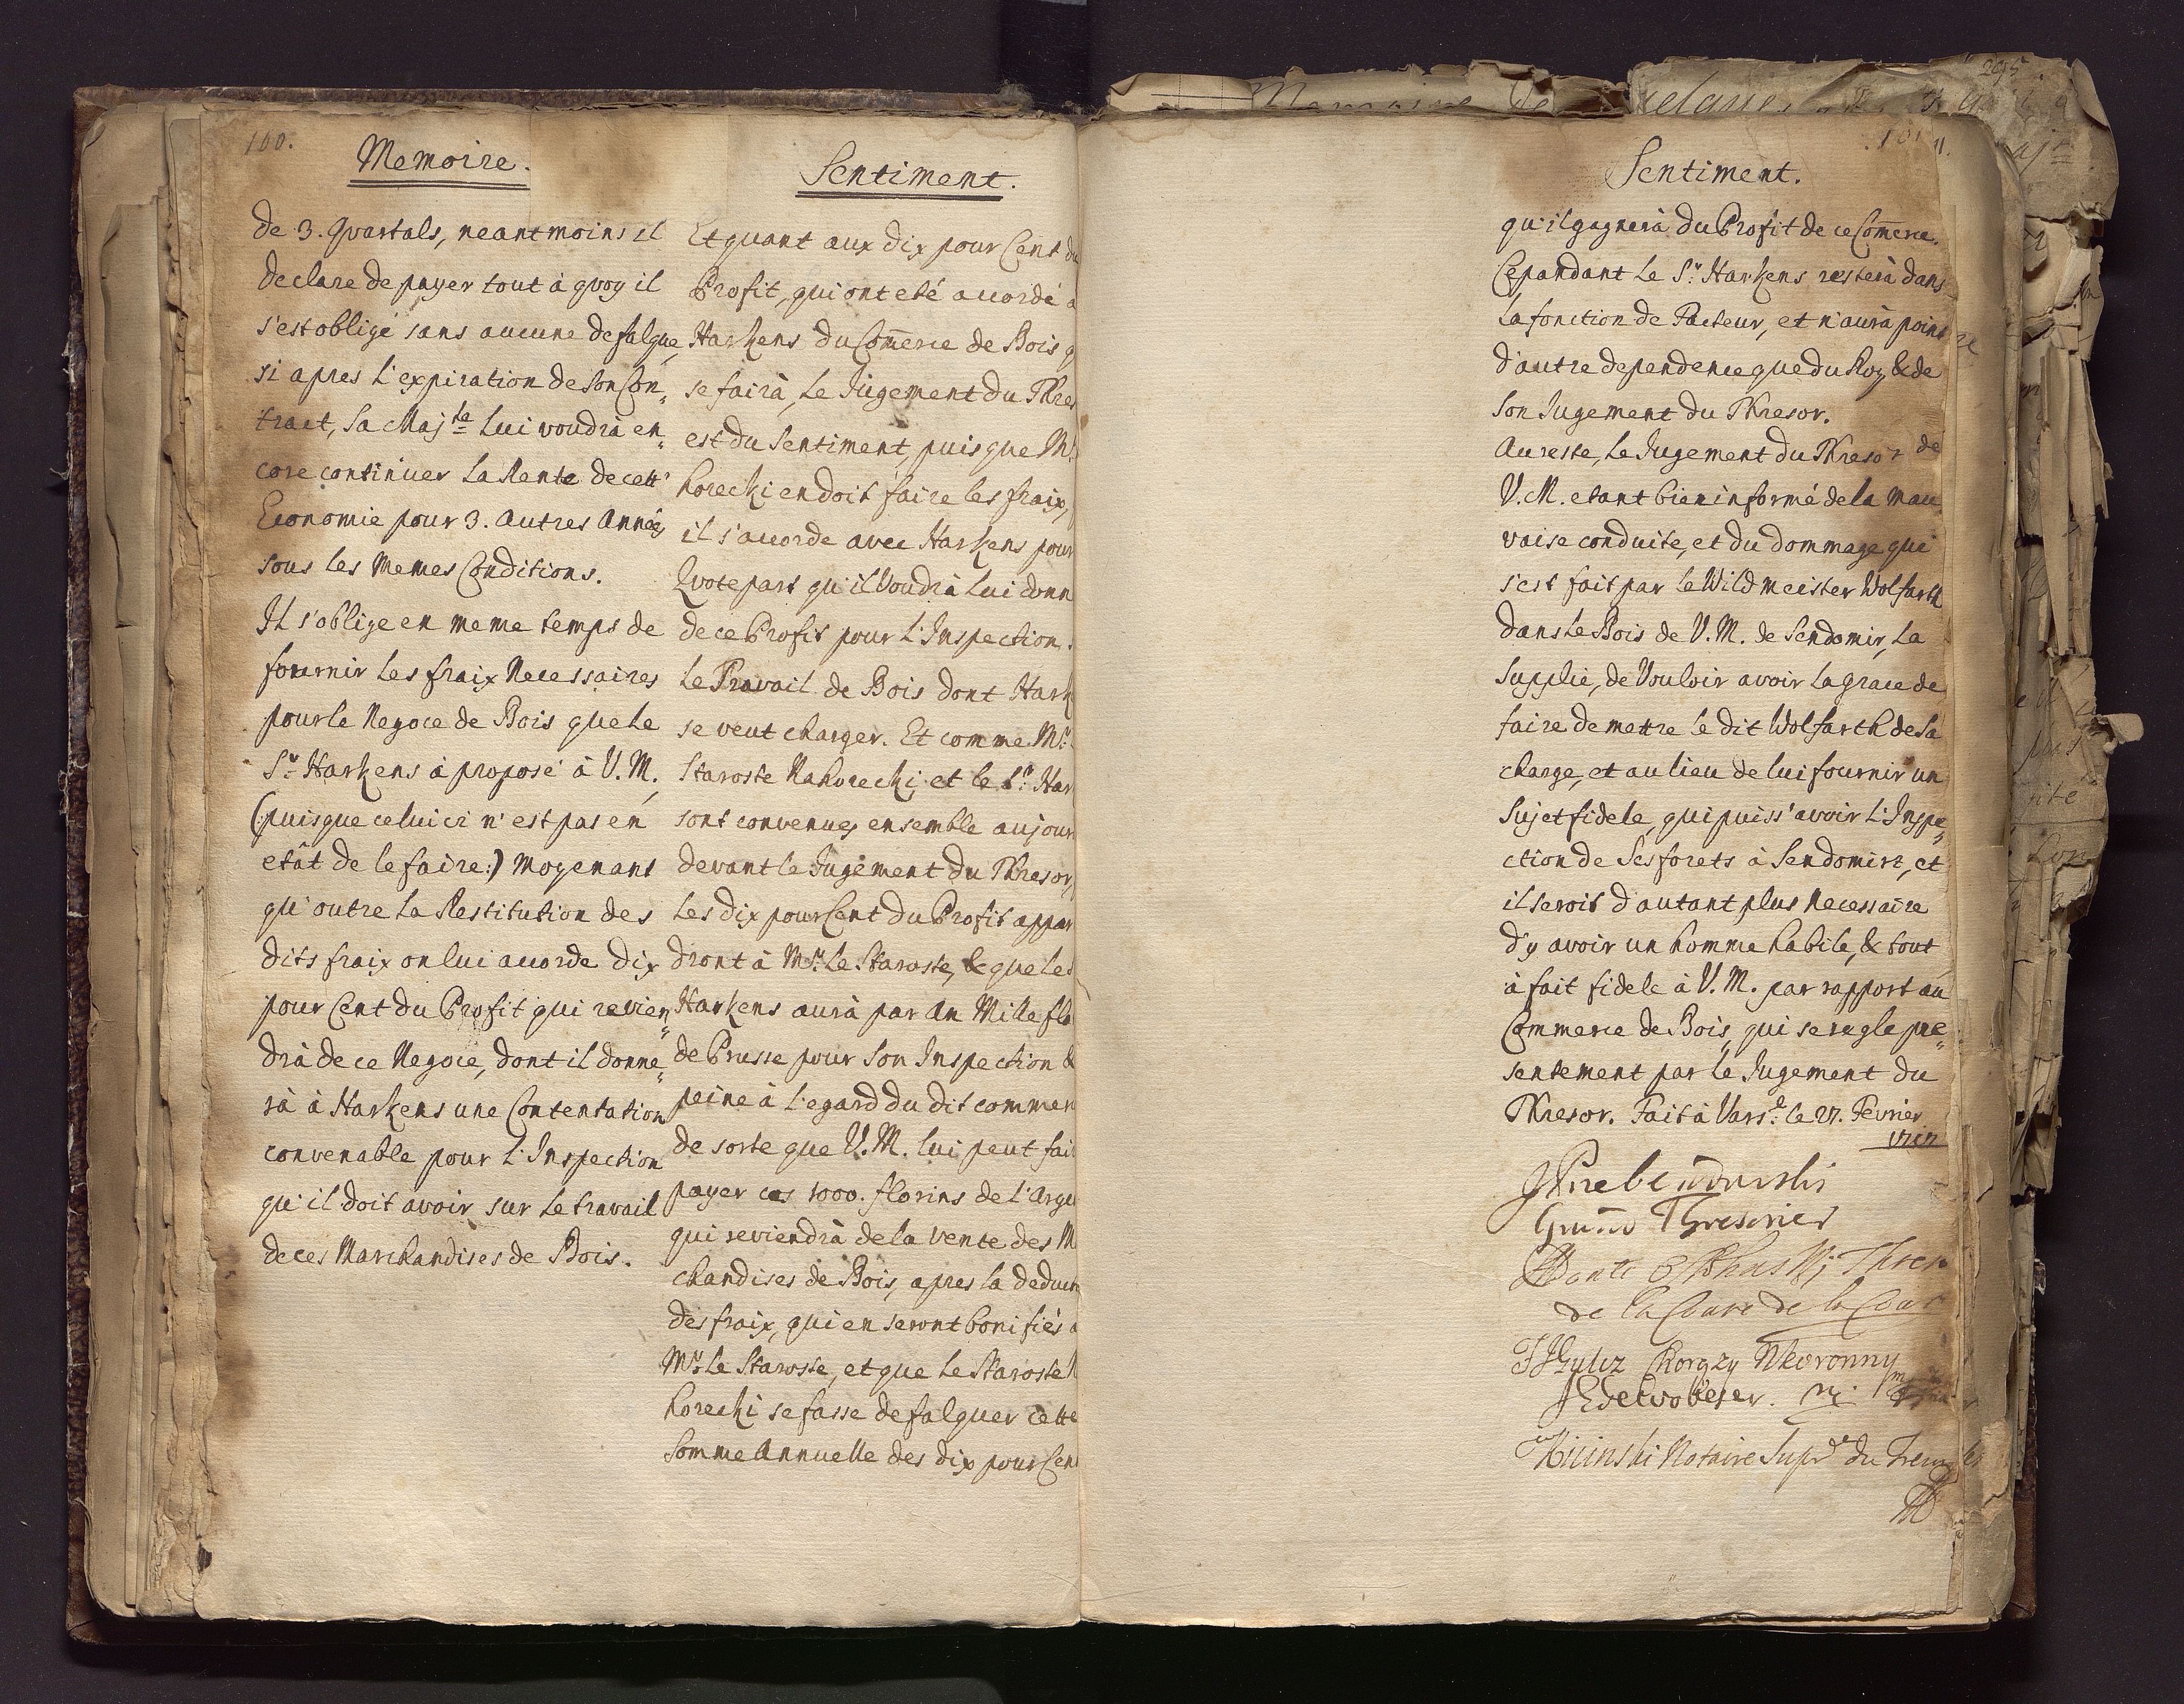 100.
Memoire.
de 3. Quartals, neantmoins il
declare de payer tout à quoy il
s'est obligé sans aucune defalque,
si apres l'expiration de son Con„
tract, Sa Maj.te lui voudrà en„
core continuer la Rente de cett'
Economie pour 3. autres Années
sous les memes Conditions.
Il s'oblige en meme temps de
fournir les fraix necessaires
pour le Negoce de Bois que le
S.r Harkens à proposé à V. M.
(:puisque celui ci n'est pas en
etât de le faire:) moyenant
qu'outre la Restitution des
dits fraix on lui acorde dix
pour Cent du Profit qui revien„
drà de ce Negoce, dont il donne„
rà à Harkens une Contentation
convenable pour l'Inspection
qu'il doit avoir sur le travail
de ces Marchandises de Bois.
Sentiment.
Et quant aux dix pour Cent du
Profit, qui ont eté acordé a
Harkens du Com̄erce de Bois q
se fairà, le Jugement du Thres
est du Sentiment, puis que M.r
horecki en doit faire les fraix,
il s'acorde avec Harkens pour
Quotepart qu'il voudrà lui donn
de ce Profit pour l'Inspection.
le Travail de Bois dont Hark
se veut charger. Et comme M.r
Staroste Nahorecki et le S.r Har
sont convenues ensemble aujour
devant le Jugement du Thresor,
les dix pour Cent du Profit appar
dront à M.r le Staroste, & que le S
Harkens aurà par An Mille flo
de Prusse pour son Inspection &
peine à l'egard du dit commer
de sorte que V. M. lui peut fai
payer ces 1000. florins de l'Arge
qui reviendrà de la vente des M
chandises de Bois, apres la deduct
des fraix, qui en seront bonifiés a
M.r le Staroste, et que le Staroste N
horecki se fasse defalquer cette
Somme Annuelle des dix pour Cen
101
Sentiment.
qu'il gagnerà du Profit de ce Com̄erce.
Cepandant le S.r Harkens resterà dans
la fonction de Facteur, et n'aurà point
d'autre dependence que du Roy & de
son Jugement du Thresor.
Au reste, le Jugement du Thresor de
V. M. etant bien informé de la mau
vaise conduite, et du dommage qui
s'est fait par le Wildmeister Wolfarth
dans le Bois de V. M. de Sendomir, la
Supplie, de Vouloir avoir la grace de
faire demettre le dit Wolfarth de sa
charge, et au lieu de lui fournir un
Sujet fidele, qui puiss'avoir l'Inspe„
ction de Ses forets à Sendomir, et
il seroit d'autant plus necessaire
d'y avoir un homme habile, & tout
à fait fidele à V. M. par rapport au
Commerce de Bois, qui se regle pre„
sentement par le Jugement du
Thresor. Fait à Vars.e le 27. Fevrier
1717
JPrebendowski
Grand Thresorier
de la Coure de la Cour
Chorązy Nkoronny
Notaire Sup.r du